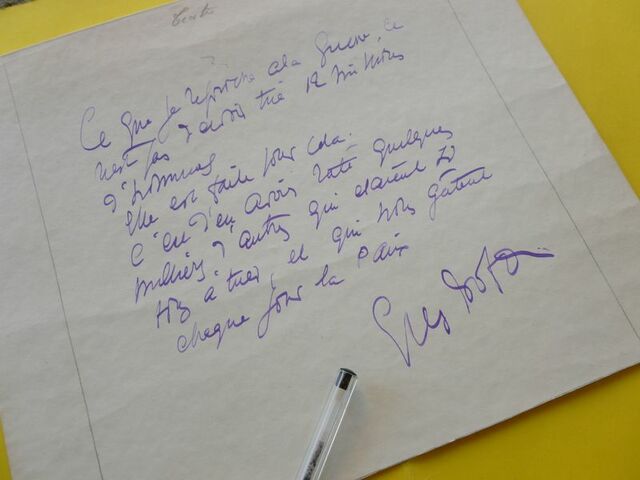 Texte
Ce que je reproche à la guerre, ce
n'est pas d'avoir tué 12 millions
d'hommes
Elle est faite pour cela.
C'est d'en avoir raté quelques
milliers d'autres qui étaient
à tuer, et qui nous gâtent
chaque jour la paix
Gus Bofa